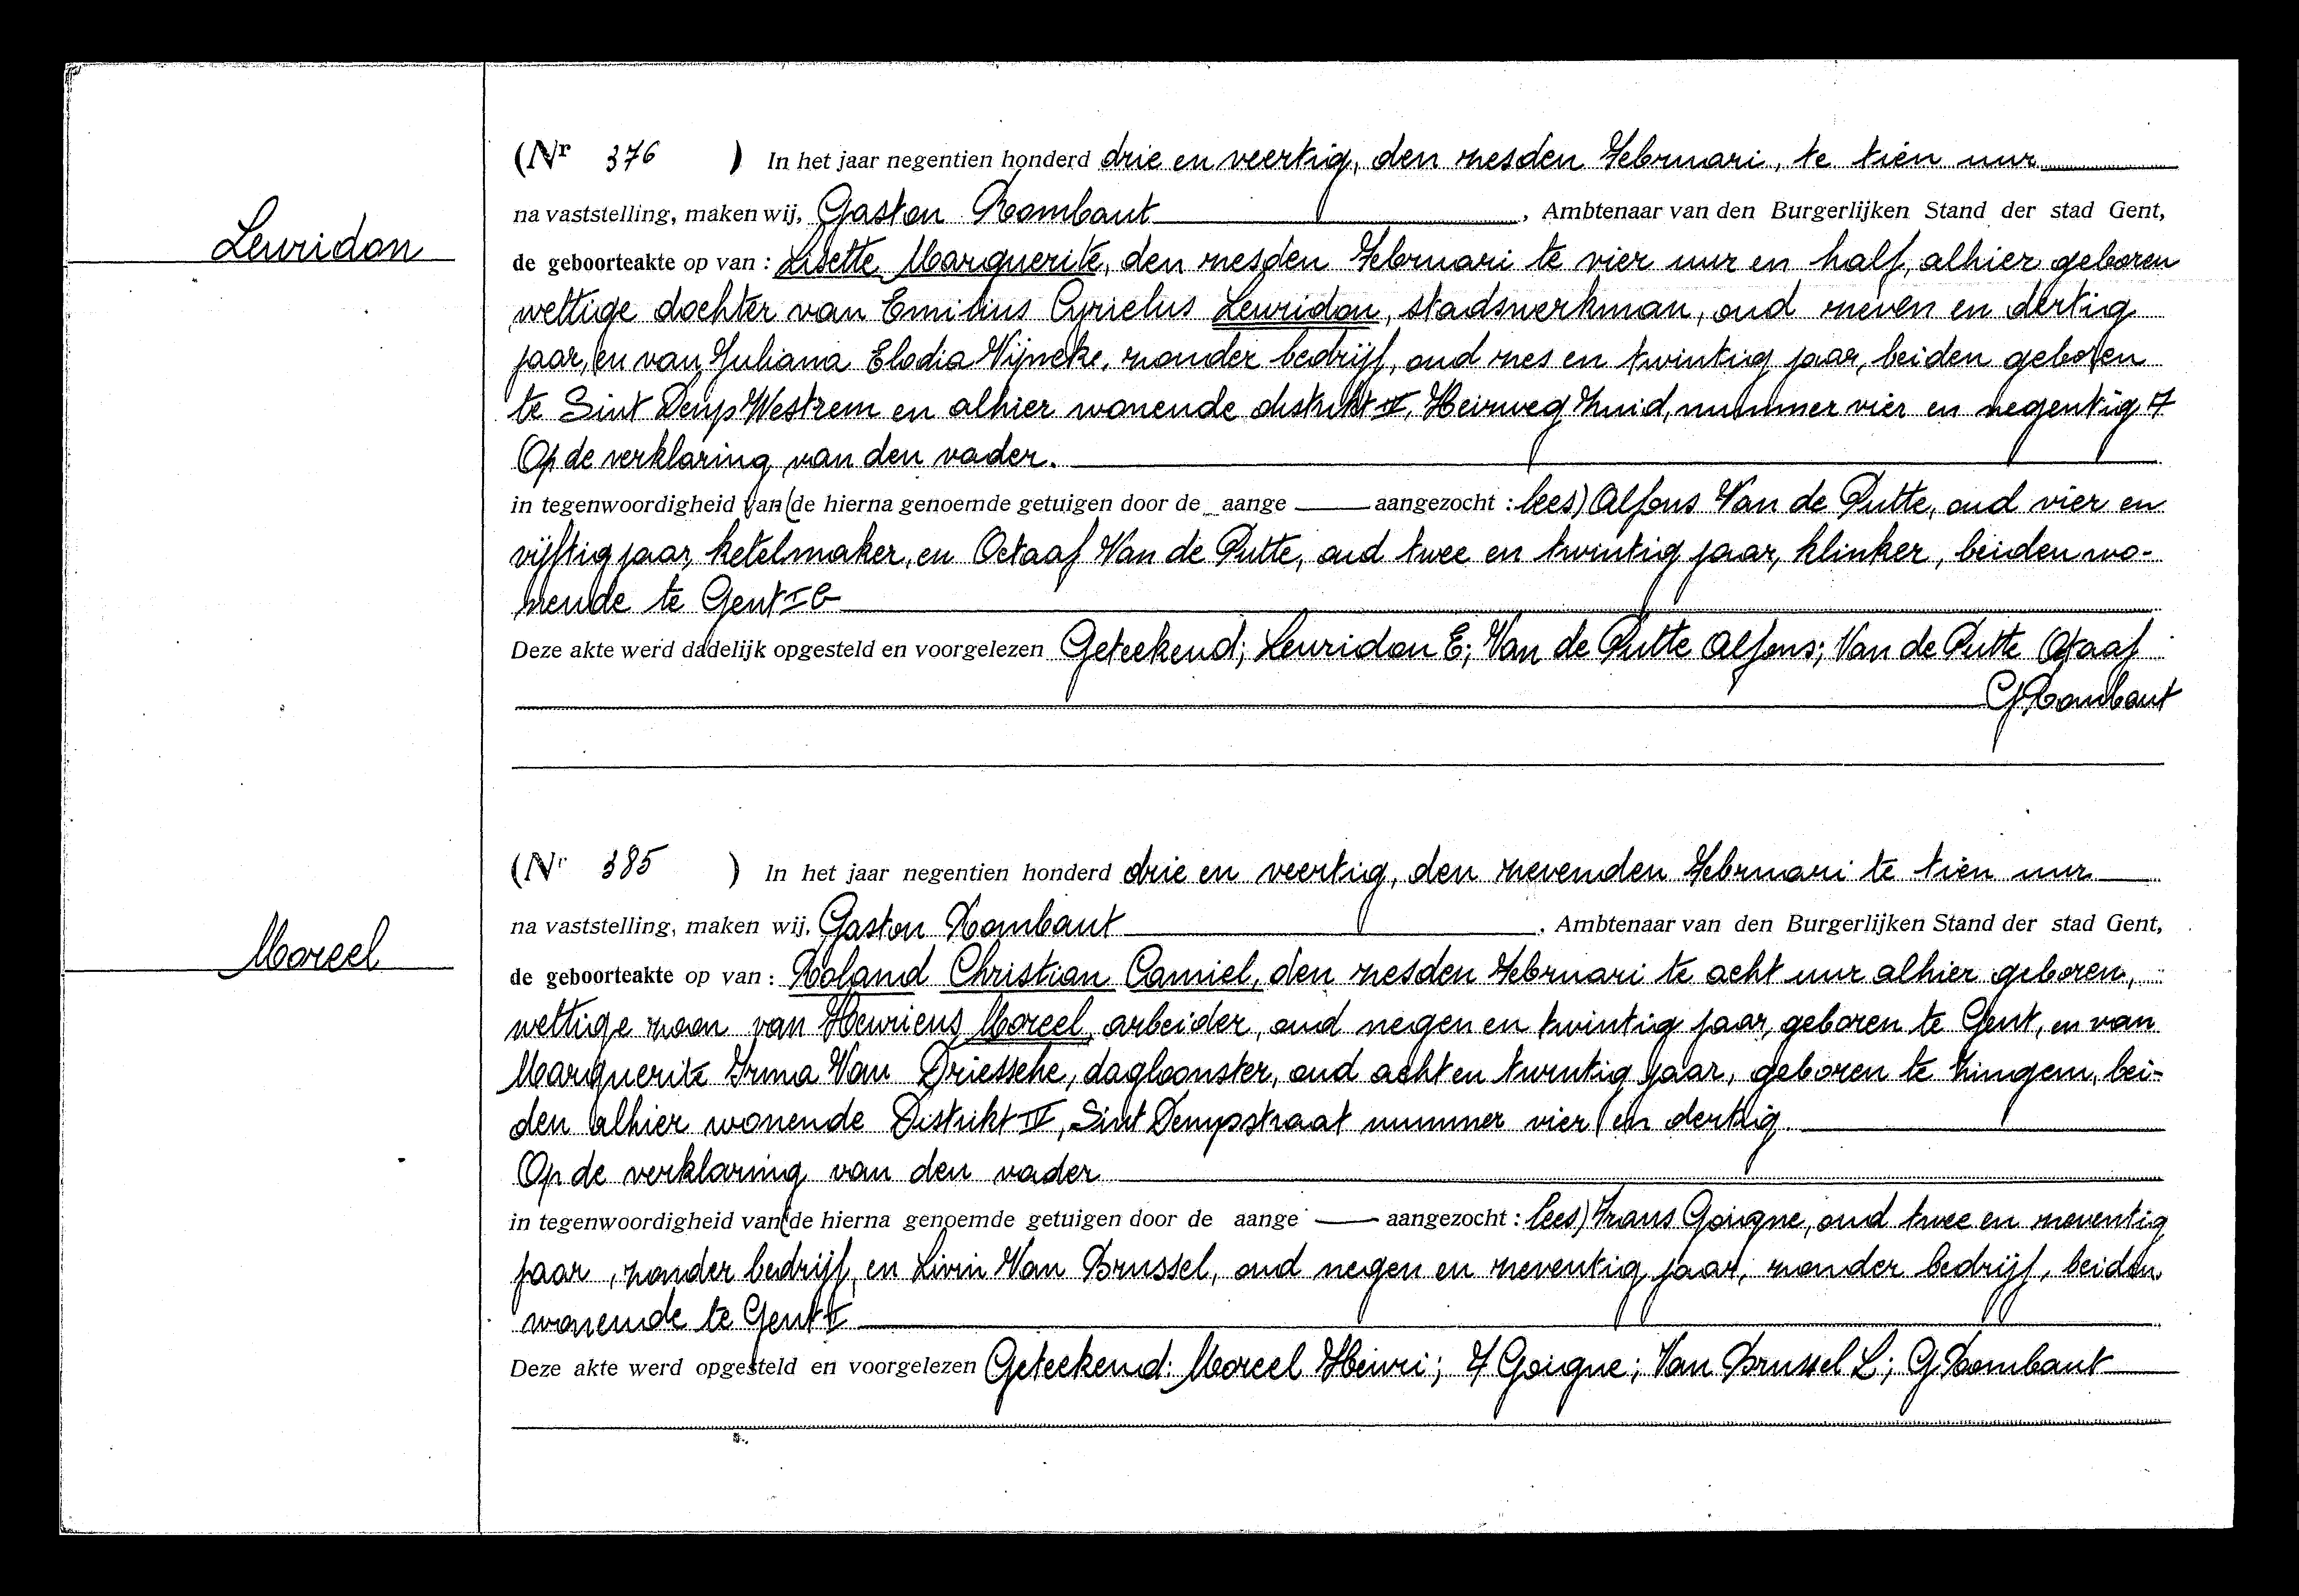 (Nr 376 ) In het jaar negentien honderd drie en veertig, den zesden Februari, te tien uur
na vaststelling, maken wij, Gaston Rombaut, Ambtenaar van den Burgerlijken Stand der stad Gent,
Leuridan
de geboorteakte op van : Lisette Marguerite, den zesden Februari te vier uur en half, alhier geboren
wettige dochter van Emilius Cyrielus Leuridan, stadswerkman, oud zeven en dertig
jaar, en van Juliana Elodia Wijncke, zonder bedrijf, oud zes en twintig jaar, beiden geboren
te Sint Denijs Westrem en alhier wonende distrikt IV, Heirweg Zuid, nummer vier en negentig
Op de verklaring van den vader.
in tegenwoordigheid van (de hierna genoemde getuigen door de aange aangezocht : lees) Alfons Van de Putte, oud vier en
vijftig jaar, ketelmaker, en Octaaf Van de Putte, oud twee en twintig jaar, klinker, beiden wo-
nende te Gent
Deze akte werd dadelijk opgesteld en voorgelezen Geteekend; Leuridan E; Van de Putte Alfons; Van de Putte Octaaf
G Rombaut
(Nr 385 ) In het jaar negentien honderd drie en veertig, den zevenden Februari te tien uur
na vaststelling, maken wij, Gaston Rombaut, Ambtenaar van den Burgerlijken Stand der stad Gent,
Moreel
de geboorteakte op van : Roland Christian Camiel, den zesden Februari te acht uur alhier geboren,
wettige zoon van Henricus Moreel, arbeider, oud negen en twintig jaar, geboren te Gent, en van
Marguerite Irma Van Driessche, dagloonster, oud acht en twintig jaar, geboren te Zingem, bei-
den alhier wonende Distrikt IV, Sint Denijsstraat nummer vier en dertig
Op de verklaring van den vader
in tegenwoordigheid van (de hierna genoemde getuigen door de aange aangezocht : lees) Frans Goigne, oud twee en zeventig
jaar, zonder bedrijf, en Livin Van Brussel, oud negen en zeventig jaar, zonder bedrijf, beiden
wonende te Gent
Deze akte werd opgesteld en voorgelezen Geteekend: Moreel Henri; F Goigne; Van Brussel L; G Rombaut